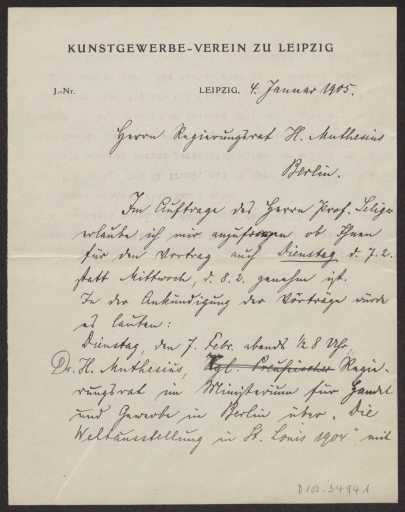 KUNSTGEWERBE-VEREIN ZU LEIPZIG
J.-Nr. LEIPZIG, 4. Januar 1905.
Herrn Regierungsrat H. Muthesius
Berlin.
Im Auftrage des Herrn Prof. Seliger
erlaube ich mir anzufragen ob Ihnen
für den Vortrag auch Dienstag, d. 7.2.
statt Mittwoch, d. 8.2. genehm ist.
In der Ankündigung der Vorträge würde
es lauten:
Dienstag, den 7. Febr. abends ½ 8 Uhr
Dr. H. Muthesius, Kgl. Preußischer Regie-
rungsrat im Ministerium für Handel
und Gewerbe in Berlin über „Die
Weltausstellung in St. Louis 1904" mit